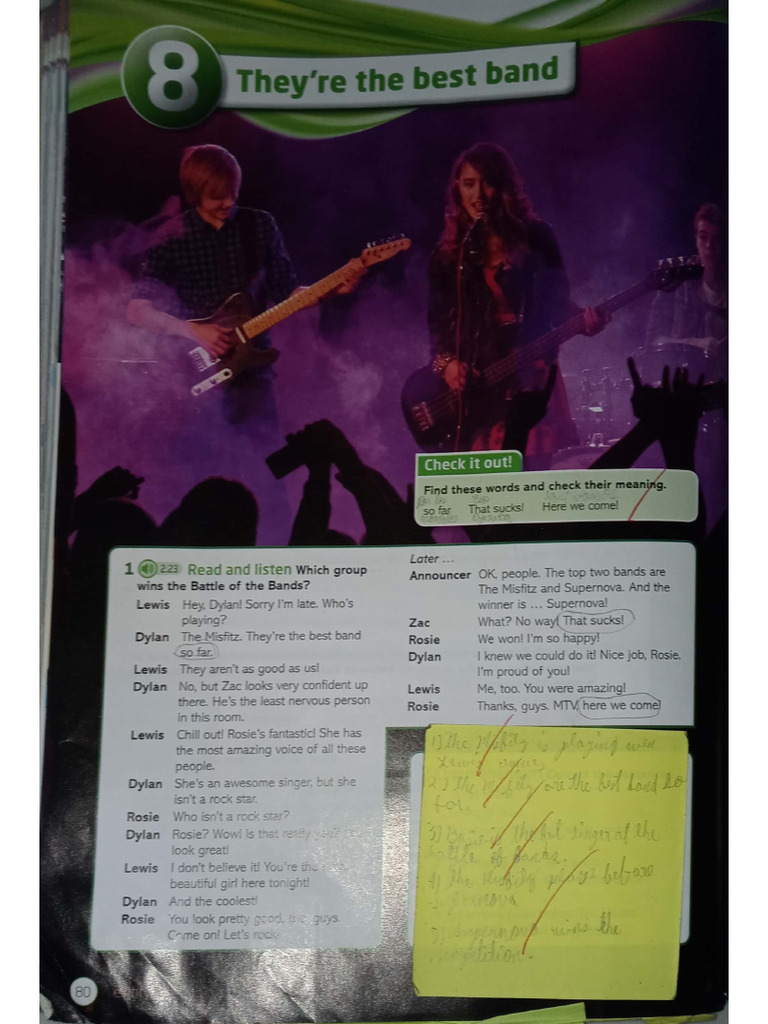 8
They're the best band
Check it out!
Find these words and check their meaning.
so far That sucks! Here we come!
1 2.23 Read and listen Which group
wins the Battle of the Bands?
Lewis Hey, Dylan! Sorry I'm late. Who's
playing?
Dylan The Misfitz. They're the best band
so far.
Lewis They aren't as good as us!
Dylan No, but Zac looks very confident up
there. He's the least nervous person
in this room.
Lewis Chill out! Rosie's fantastic! She has
the most amazing voice of all these
people.
Dylan She's an awesome singer, but she
isn't a rock star.
Rosie Who isn't a rock star?
Dylan Rosie? Wow! Is that really you? You
look great!
Lewis I don't believe it! You're the most
beautiful girl here tonight!
Dylan And the coolest!
Rosie You look pretty good, too, guys.
Come on! Let's rock!
Later ...
Announcer OK, people. The top two bands are
The Misfitz and Supernova. And the
winner is ... Supernova!
Zac What? No way! That sucks!
Rosie We won! I'm so happy!
Dylan I knew we could do it! Nice job, Rosie.
I'm proud of you!
Lewis Me, too. You were amazing!
Rosie Thanks, guys. MTV, here we come!
1) the Misfitz is playing
2) the are the best band so
far.
3) the singer of the
battle of bands.
4) the plays before
5) Supernova wins the
competition.
80